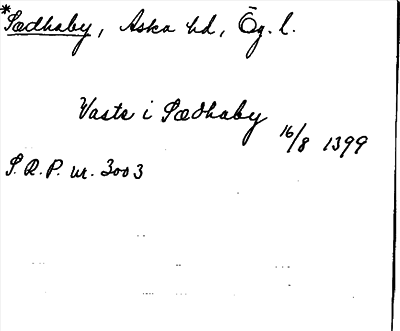 *Sædhaby, Aska hd, Ög. l.
Vaste i Sædhaby
16/8 1399
S.R.P. nr. 3003